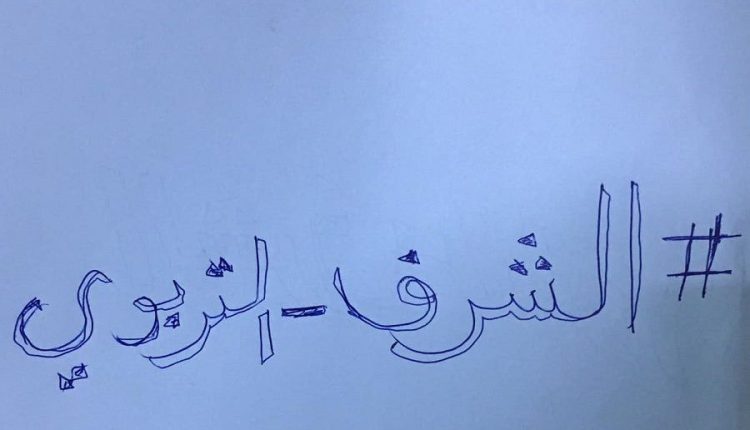 #الشرف_التربوي